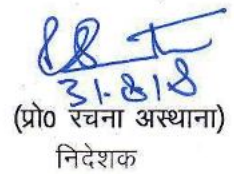 31.8.18
(प्रो0 रचना अस्थाना)
निदेशक